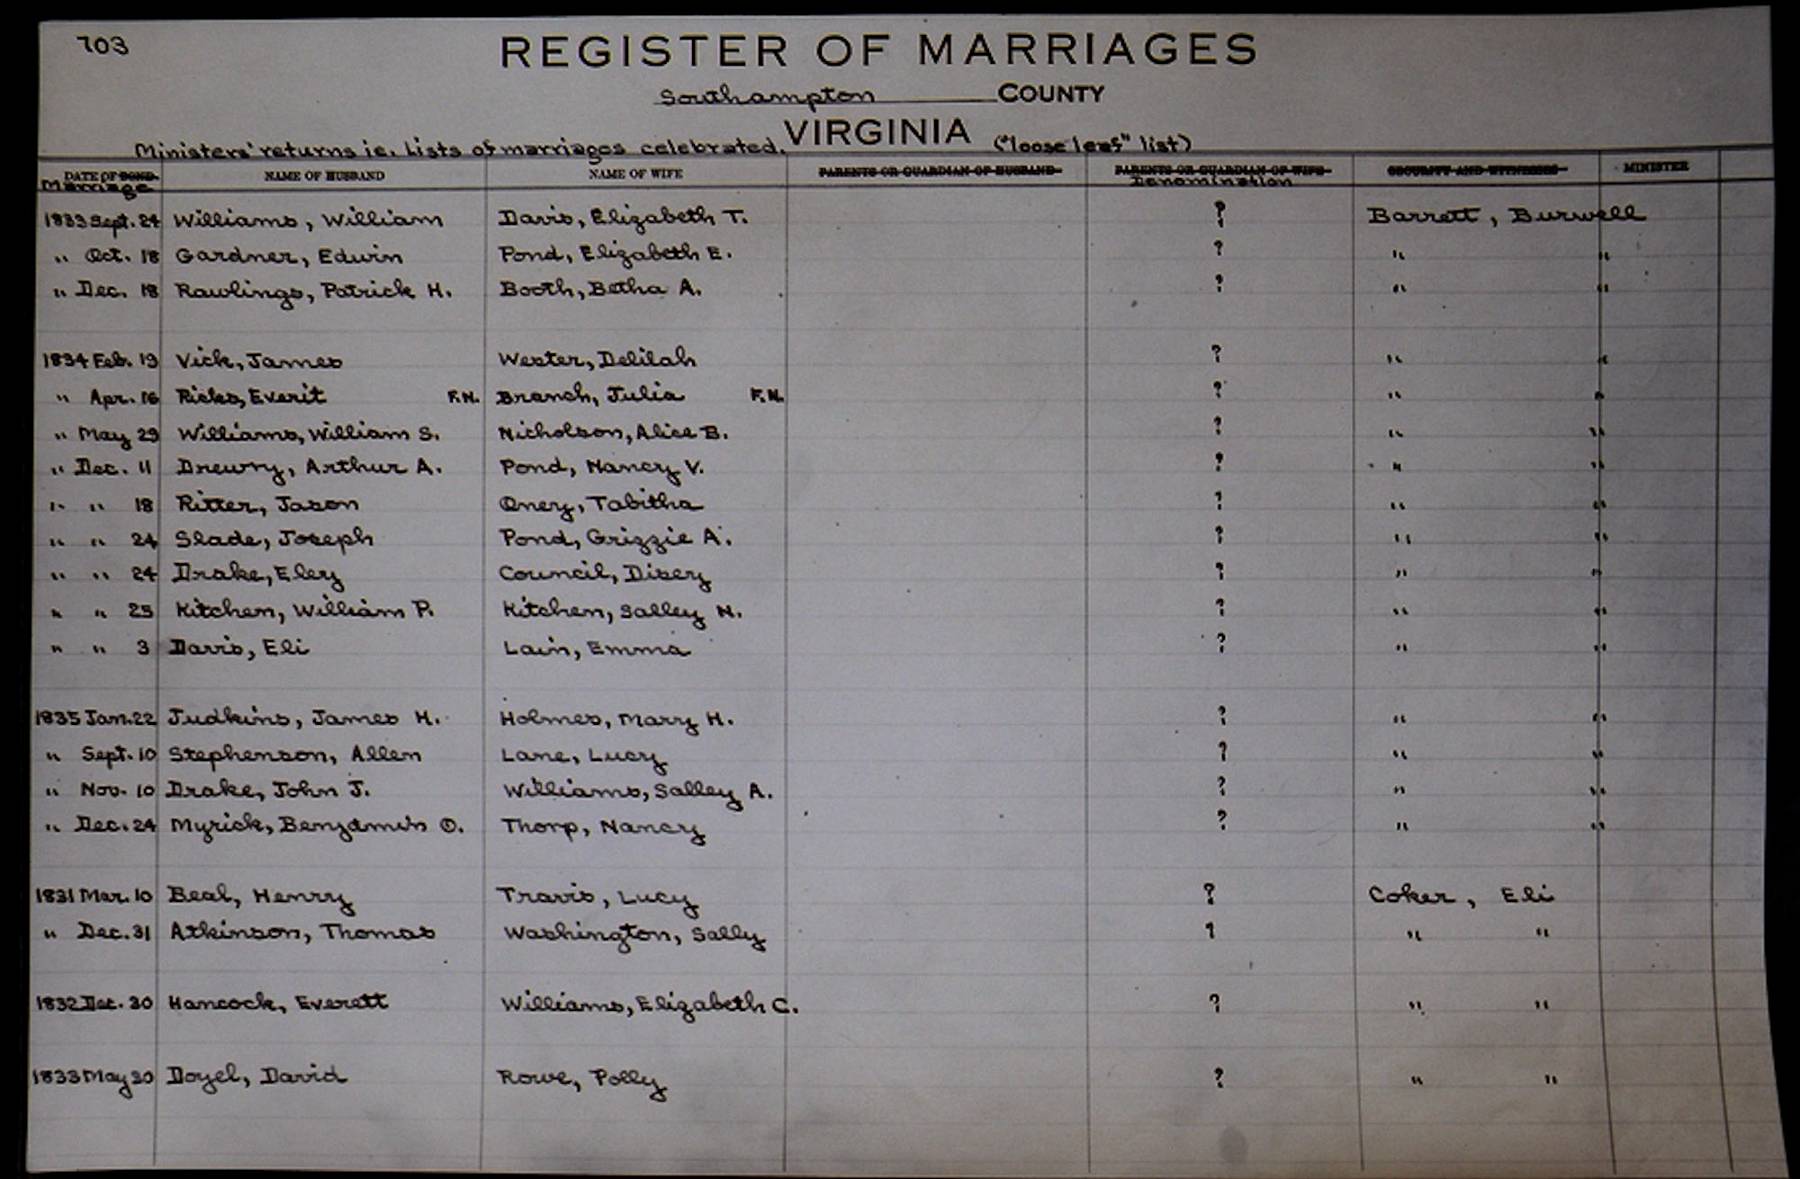 703
REGISTER OF MARRIAGES
Southampton COUNTY
VIRGINIA
Ministers' returns ie. Lists of marriages celebrated. ("loose leaf" list)
DATE OF BOND NAME OF HUSBAND NAME OF WIFE PARENTS OR GUARDIAN OF HUSBAND PARENTS OR GUARDIAN OF WIFE SECURITY AND WITNESSES MINISTER
Marriage Denomination
1833 Sept. 24 Williams, William Davis, Elizabeth T. ? Barrett, Burwell
" Oct. 18 Gardner, Edwin Pond, Elizabeth E. ? " "
" Dec. 18 Rawlings, Patrick H. Booth, Betha A. ? " "
1834 Feb. 19 Vick, James Wester, Delilah ? " "
" Apr. 16 Ricks, Everit F.N. Branch, Julia F.N. ? " "
" May 29 Williams, William S. Nicholson, Alice B. ? " "
" Dec. 11 Drewry, Arthur A. Pond, Nancy V. ? " "
" " 18 Ritter, Jason Oney, Tabitha ? " "
" " 24 Slade, Joseph Pond, Grizzie A. ? " "
" " 24 Drake, Eley Council, Disey ? " "
" " 25 Kitchen, William P. Kitchen, Salley N. ? " "
" " 3 Davis, Eli Lain, Emma ? " "
1835 Jan. 22 Judkins, James H. Holmes, Mary H. ? " "
" Sept. 10 Stephenson, Allen Lane, Lucy ? " "
" Nov. 10 Drake, John J. Williams, Salley A. ? " "
" Dec. 24 Myrick, Benjamin O. Thorp, Nancy ? " "
1831 Mar. 10 Beal, Henry Travis, Lucy ? Coker, Eli
" Dec. 31 Atkinson, Thomas Washington, Sally ? " "
1832 Dec. 30 Hancock, Everett Williams, Elizabeth C. ? " "
1833 May 30 Doyel, David Rowe, Polly ? " "